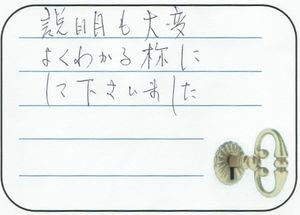 説明も大変
よくわかる称に
して下さいました